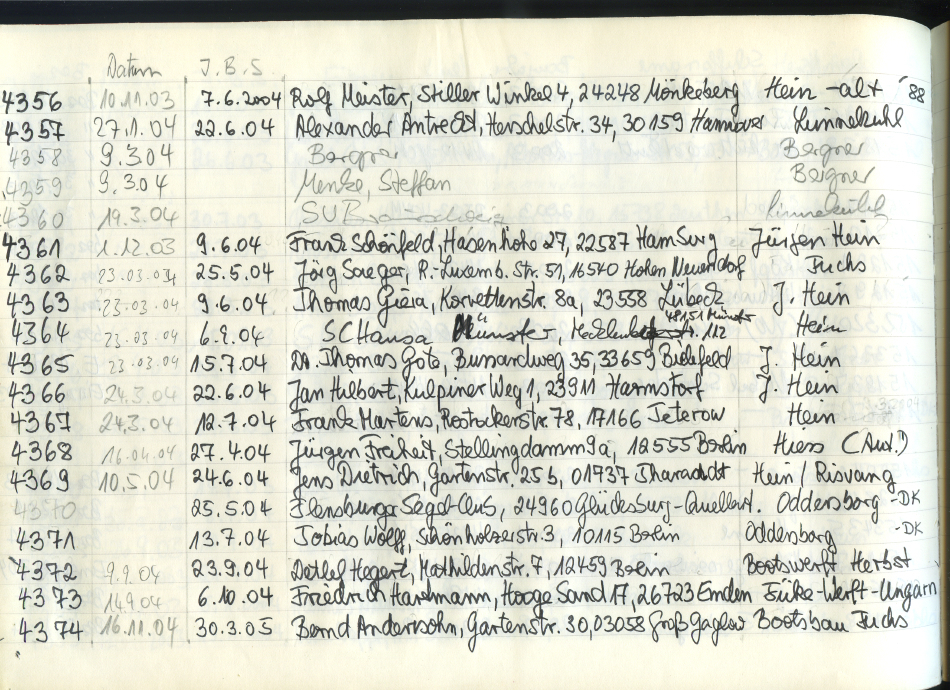 Datum J.B.S
4356 10.11.03 7.6.2004 Rolf Meister, Stiller Winkel 4, 24248 Mönkeberg Hein -alt '88
4357 27.1.04 22.6.04 Alexander Hannover, Herschelstr. 34, 30159 Lünnekuhl
4358 9.3.04 Bergner Bergner
4359 9.3.04 Menke, Steffan Bergner
4360 19.3.04
4361 1.12.03 9.6.04 Frank Schönfeld, Hasenhöhe 27, 22587 Hamburg Jürgen Hein
4362 23.03.04 25.5.04 Jörg Saeger, R.-Luxemb. Str. 51, 16540 Hohen Neuendorf Fuchs
4363 23.03.04 9.6.04 Thomas Korvettenstr. 8a, 23558 Lübeck J. Hein
48151 Münster
4364 23.03.04 SC Hansa Münster, 112 Hein
4365 23.03.04 15.7.04 Dr. Thomas Goto, Bussardweg 35, 33659 Bielefeld J. Hein
4366 24.3.04 22.6.04 Jan Hulbert, Kulpiner Weg 1, 23911 Harmstorf J. Hein
4367 24.3.04 12.7.04 Frank Martens, Rostockerstr. 78, 17166 Teterow Hein
4368 16.04.04 27.4.04 Jürgen Freiheit, Stellingdamm 9a, 12555 Berlin Hiess
4369 10.5.04 24.6.04 Jens Dietrich, Gartenstr. 25 b, 01737 Tharandt Hein / Risvang
4370 25.5.04 Flensburger Segel-Club, 24960 Glücksburg-Quellent. Oddersborg -DK
4371 13.7.04 Tobias Wolff, Schönholzerstr. 3, 10115 Berlin Oddersborg -DK
4372 9.9.04 23.9.04 Detlef Hegert, Mathildenstr. 7, 12459 Berlin Bootswerft Herbst
4373 14.9.04 6.10.04 Friedrich Hartmann, Hooge Sand 17, 26723 Emden Füke-Werft-Ungarn
4374 16.11.04 30.3.05 Bernd Andersohn, Gartenstr. 30, 03058 Groß Gaglow Bootsbau Fuchs